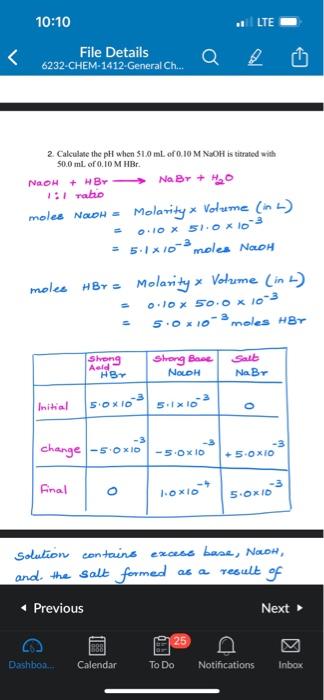 10:10
LTE
File Details
6232-CHEM-1412-General Ch...
2. Calculate the pH when 51.0 mL of 0.10 M NaOH is titrated with
50.0 mL of 0.10 M HBr.
NaOH + HBr ⟶ NaBr + H₂O
1:1 ratio
moles NaOH = Molarity x Volume (in L)
= 0.10 x 51.0 x 10⁻³
= 5.1 x 10⁻³ moles NaOH
moles HBr = Molarity x Volume (in L)
= 0.10 x 50.0 x 10⁻³
= 5.0 x 10⁻³ moles HBr
Strong Acid HBr Strong Base NaOH Salt NaBr
Initial 5.0 x 10⁻³ 5.1 x 10⁻³ 0
change -5.0 x 10⁻³ -5.0 x 10⁻³ +5.0 x 10⁻³
Final 0 1.0 x 10⁻⁴ 5.0 x 10⁻³
Solution contains excess base, NaOH,
and the salt formed as a result of
Previous Next
25
Dashboa... Calendar To Do Notifications Inbox